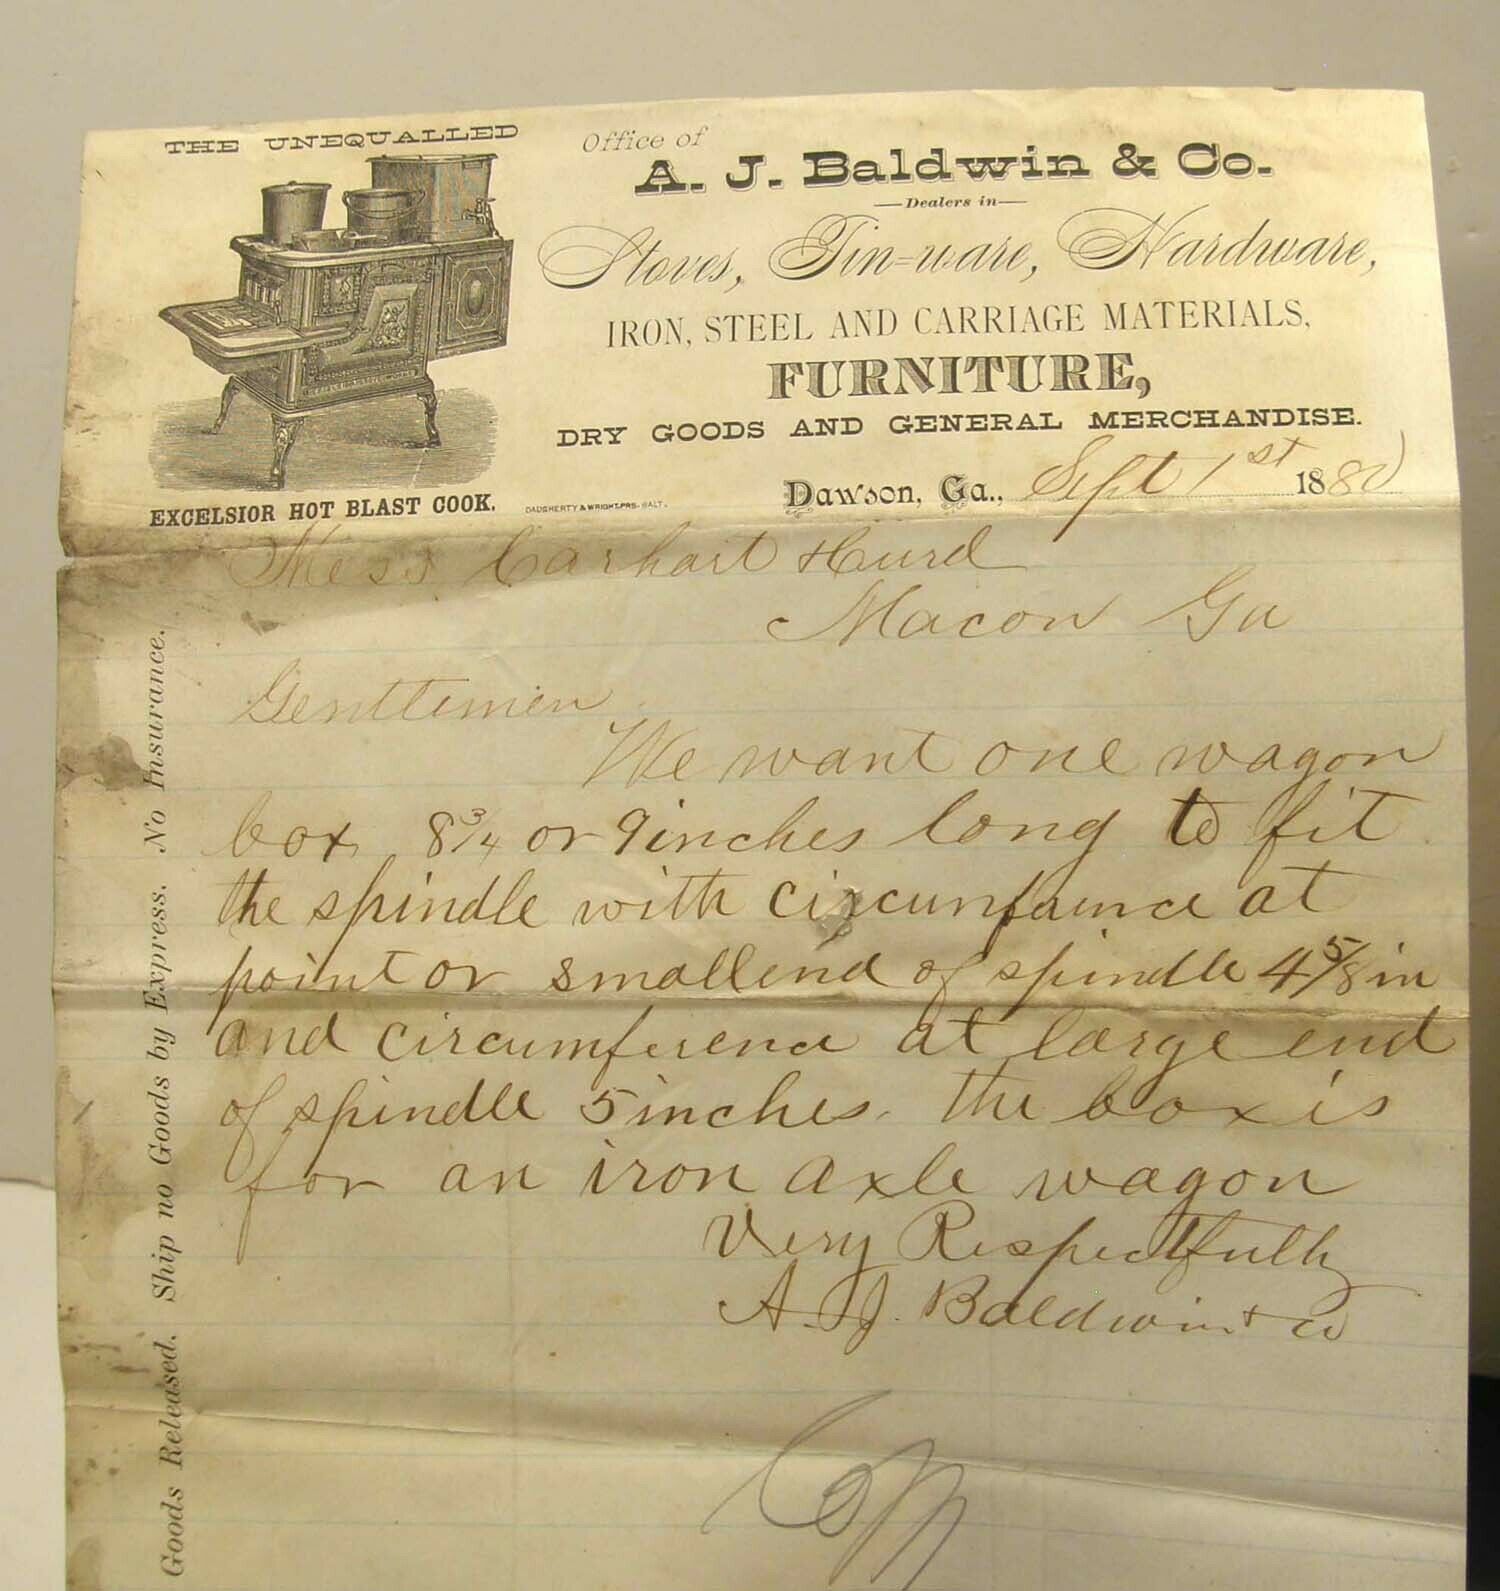 THE UNEQUALLED
EXCELSIOR HOT BLAST COOK.
Office of
A. J. Baldwin & Co.
Dealers in
Stoves, Tin-ware, Hardware,
IRON, STEEL AND CARRIAGE MATERIALS,
FURNITURE,
DRY GOODS AND GENERAL MERCHANDISE.
DAUGHERTY & WRIGHT, PRS. BALT.
Dawson, Ga., Sept 1st 1880
Mess Carhart & Curd
Macon Ga
Genttemen
We want one wagon
box 8 3/4 or 9 inches long to fit
the spindle with circumfaunce at
point or small end of spindle 4 5/8 in
and circumference at large end
of spindle 5 inches. the box is
for an iron axle wagon
Very Respectfully
A. J. Baldwin & co
Goods Released. Ship no Goods by Express. No Insurance.